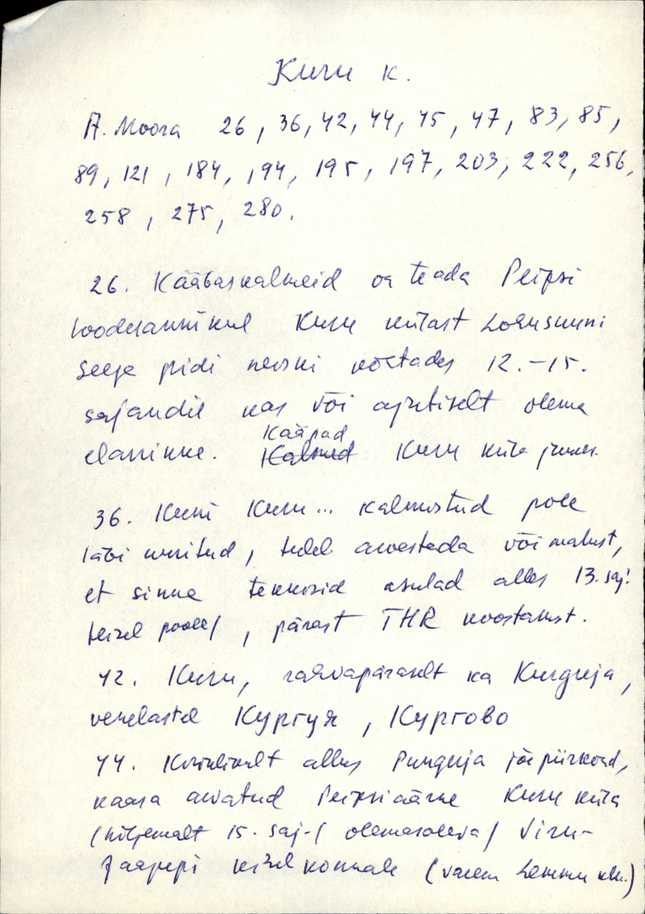 Kuru k.
A. Moora 26, 36, 42, 44, 45, 47, 83, 85,
89, 121, 184, 194, 195, 197, 203, 222, 256,
258, 275, 280.
26. Kääbaskalmeid on teada Peipsi
looderannikul Kuru külast Lohusuuni
Selle pidi neoni võttades 12.–15.
sajandil kas või ajutiselt olema
elanikke. Kääpad
Kalmed Kuru küla juures.
36. Kuni Kuru... kalmistud pole
läbi uuritud, tuleb arvestada võimalust,
et sinna tekkisid asulad alles 13. saj.
teisel poolel, pärast THR koostamist.
42. Kuru, rahvapäraselt ka Kurguja,
venelastel Кургуя, Кургово
44. alles Punguja jõe piirkond,
kaasa arvatud Peipsiäärne Kuru küla
(hiljemalt 15. saj-l olemasoleva) Viru-
Jaagupi kihelkonnale (varem Lemmu khk.)